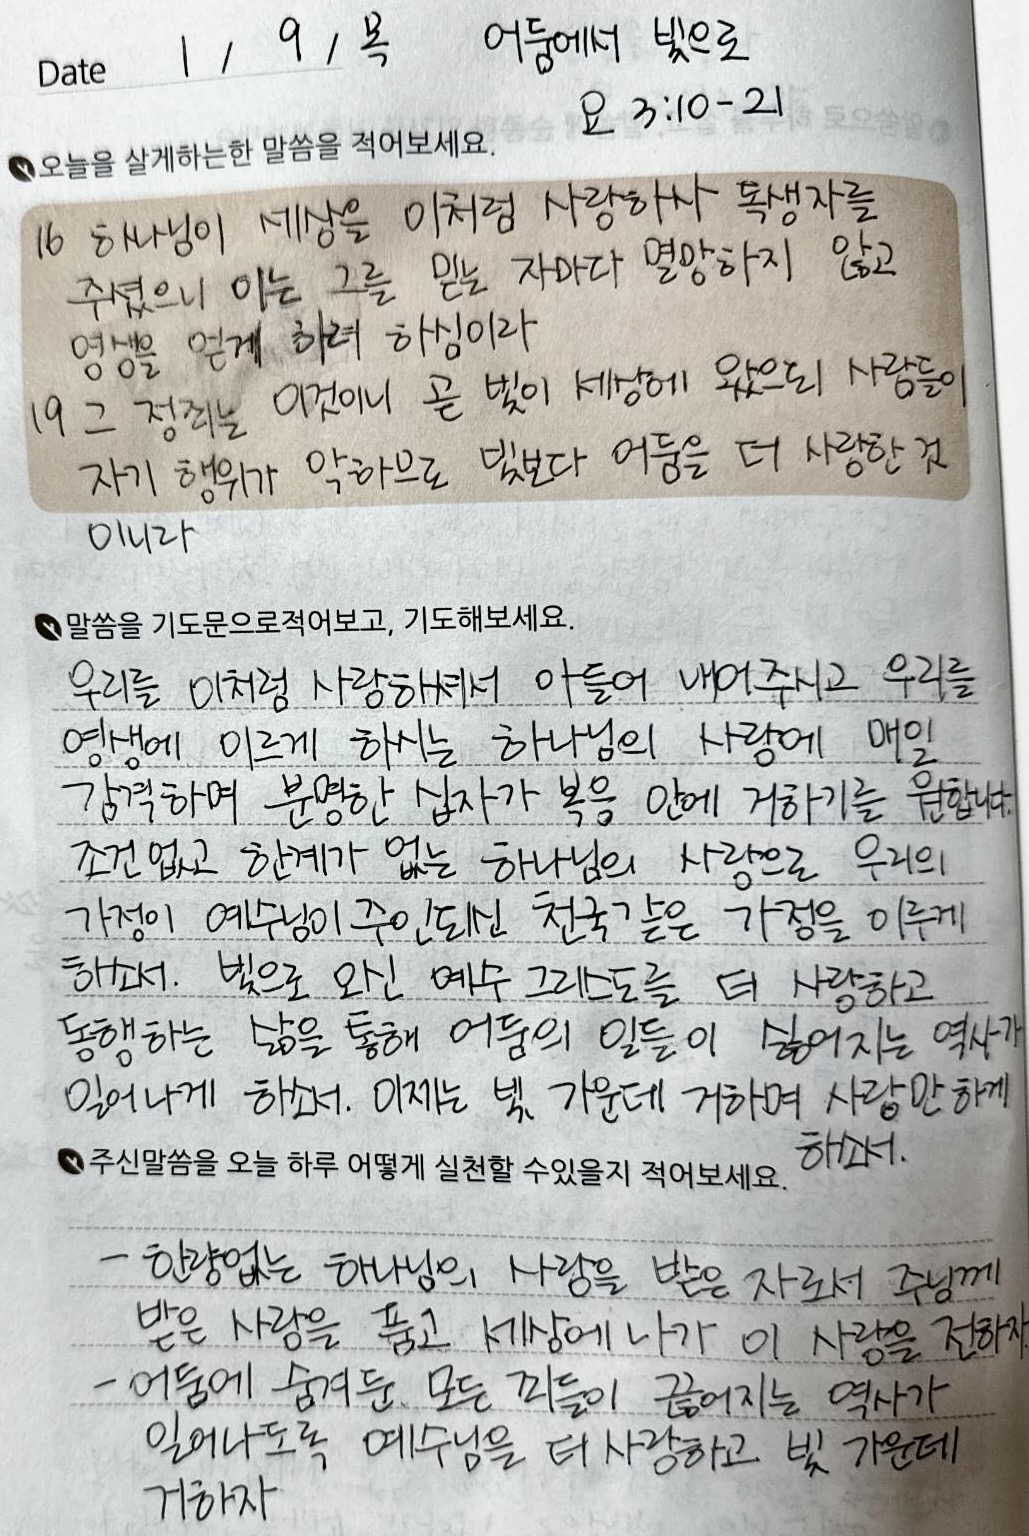 Date 1 / 9 / 목 어둠에서 빛으로
요 3:10-21
오늘을 살게하는한 말씀을 적어보세요.
16 하나님이 세상을 이처럼 사랑하사 독생자를
주셨으니 이는 그를 믿는 자마다 멸망하지 않고
영생을 얻게 하려 하심이라
19 그 정죄는 이것이니 곧 빛이 세상에 왔으되 사람들이
자기 행위가 악하므로 빛보다 어둠을 더 사랑한 것
이니라
말씀을 기도문으로적어보고, 기도해보세요.
우리를 이처럼 사랑하셔서 아들어 내어주시고 우리를
영생에 이르게 하시는 하나님의 사랑에 매일
감격하며 분명한 십자가 복음 안에 거하기를 원합니다.
조건없고 한계가 없는 하나님의 사랑으로 우리의
가정이 예수님이 주인되신 천국같은 가정을 이루게
하소서. 빛으로 오신 예수 그리스도를 더 사랑하고
동행하는 삶을 통해 어둠의 일들이 싫어지는 역사가
일어나게 하소서. 이제는 빛 가운데 거하며 사랑만 하게
하소서.
주신말씀을 오늘 하루 어떻게 실천할 수있을지 적어보세요.
- 한량없는 하나님의 사랑을 받은 자로서 주님께
받은 사랑을 품고 세상에 나가 이 사랑을 전하자.
- 어둠에 숨겨둔 모든 죄들이 끊어지는 역사가
일어나도록 예수님을 더 사랑하고 빛 가운데
거하자